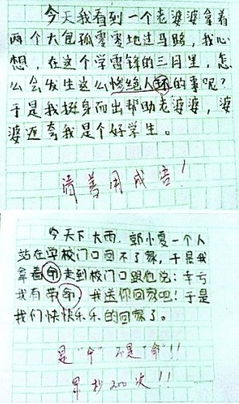 今天我看到一个老婆婆拿着
两个大包孤零零地过马路，我心
想，在这个学雷锋的三月里，怎
么会发生这么惨绝人寰的事呢？
于是我挺身而出帮助老婆婆，婆
婆还夸我是个好学生。
请善用成语！
今天下大雨，郭小雯一个人
站在学校门口回不了家，于是我
拿着命走到校门口跟他说：幸亏
我有带命，我送你回家吧！于是
我们快快乐乐的回家了。
是“伞”不是“命”!!
罚抄200次!!